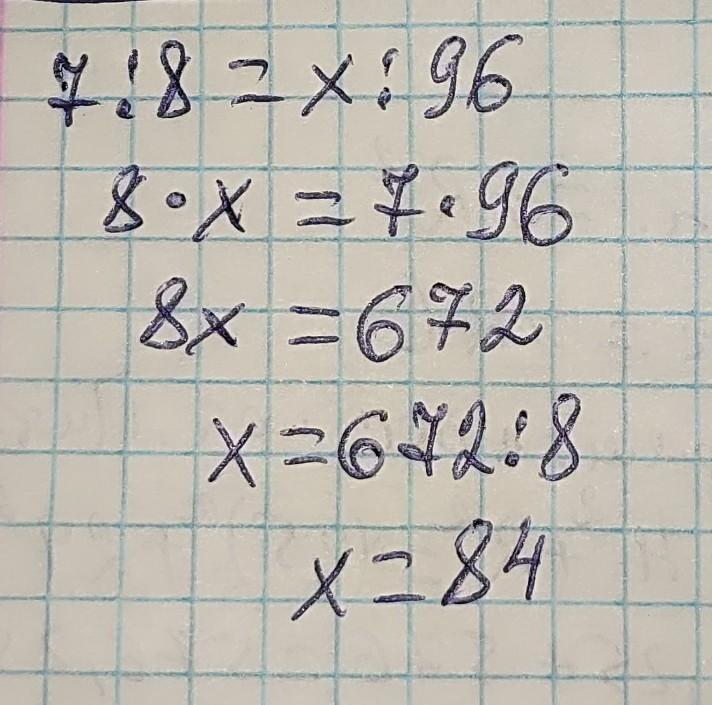 7 : 8 = x : 96
8 · x = 7 · 96
8x = 672
x = 672 : 8
x = 84